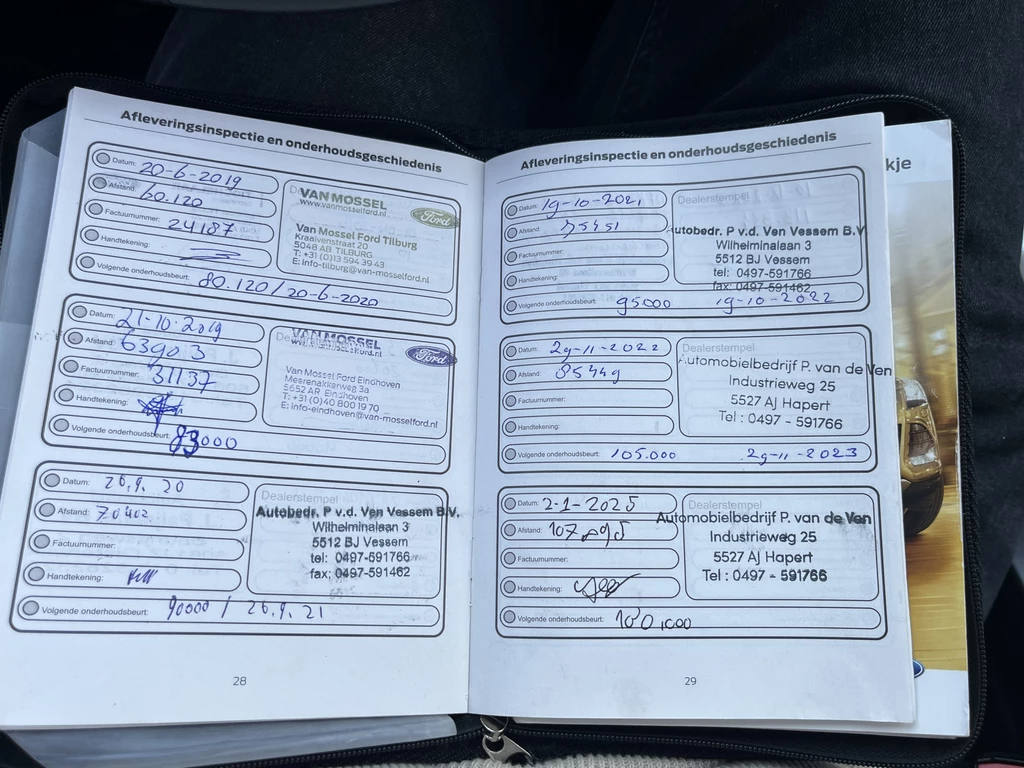 Afleveringsinspectie en onderhoudsgeschiedenis
Datum: 20-6-2019
Afstand: 60.120
Factuurnummer: 24187
Handtekening:
Volgende onderhoudsbeurt: 80.120 / 20-6-2020
VAN MOSSEL
www.vanmosselford.nl
Ford
Van Mossel Ford Tilburg
Kraaivenstraat 20
5048 AB TILBURG
T: +31 (0)13 594 39 43
E: info-tilburg@van-mosselford.nl
Datum: 21-10-2019
Afstand: 63903
Factuurnummer: 31137
Handtekening:
Volgende onderhoudsbeurt: 83000
VAN MOSSEL
www.vanmosselford.nl
Ford
Van Mossel Ford Eindhoven
Meerenakkerweg 3a
5652 AR Eindhoven
T: +31 (0)40 800 19 70
E: info-eindhoven@van-mosselford.nl
Datum: 26.9.20
Afstand: 70402
Factuurnummer:
Handtekening:
Volgende onderhoudsbeurt: 90000 / 26.9.21
Dealerstempel
Autobedr. P v.d. Ven Vessem B.V.
Wilhelminalaan 3
5512 BJ Vessem
tel: 0497-591766
fax: 0497-591462
28
Afleveringsinspectie en onderhoudsgeschiedenis
Datum: 19-10-2021
Afstand: 75451
Factuurnummer:
Handtekening:
Volgende onderhoudsbeurt: 95000 19-10-2022
Dealerstempel
Autobedr. P v.d. Ven Vessem B.V
Wilhelminalaan 3
5512 BJ Vessem
tel: 0497-591766
fax: 0497-591462
Datum: 29-11-2022
Afstand: 85449
Factuurnummer:
Handtekening:
Volgende onderhoudsbeurt: 105.000 29-11-2023
Dealerstempel
Automobielbedrijf P. van de Ven
Industrieweg 25
5527 AJ Hapert
Tel : 0497 - 591766
Datum: 2-1-2025
Afstand: 107.095
Factuurnummer:
Handtekening:
Volgende onderhoudsbeurt:
Dealerstempel
Automobielbedrijf P. van de Ven
Industrieweg 25
5527 AJ Hapert
Tel : 0497 - 591766
29
kje